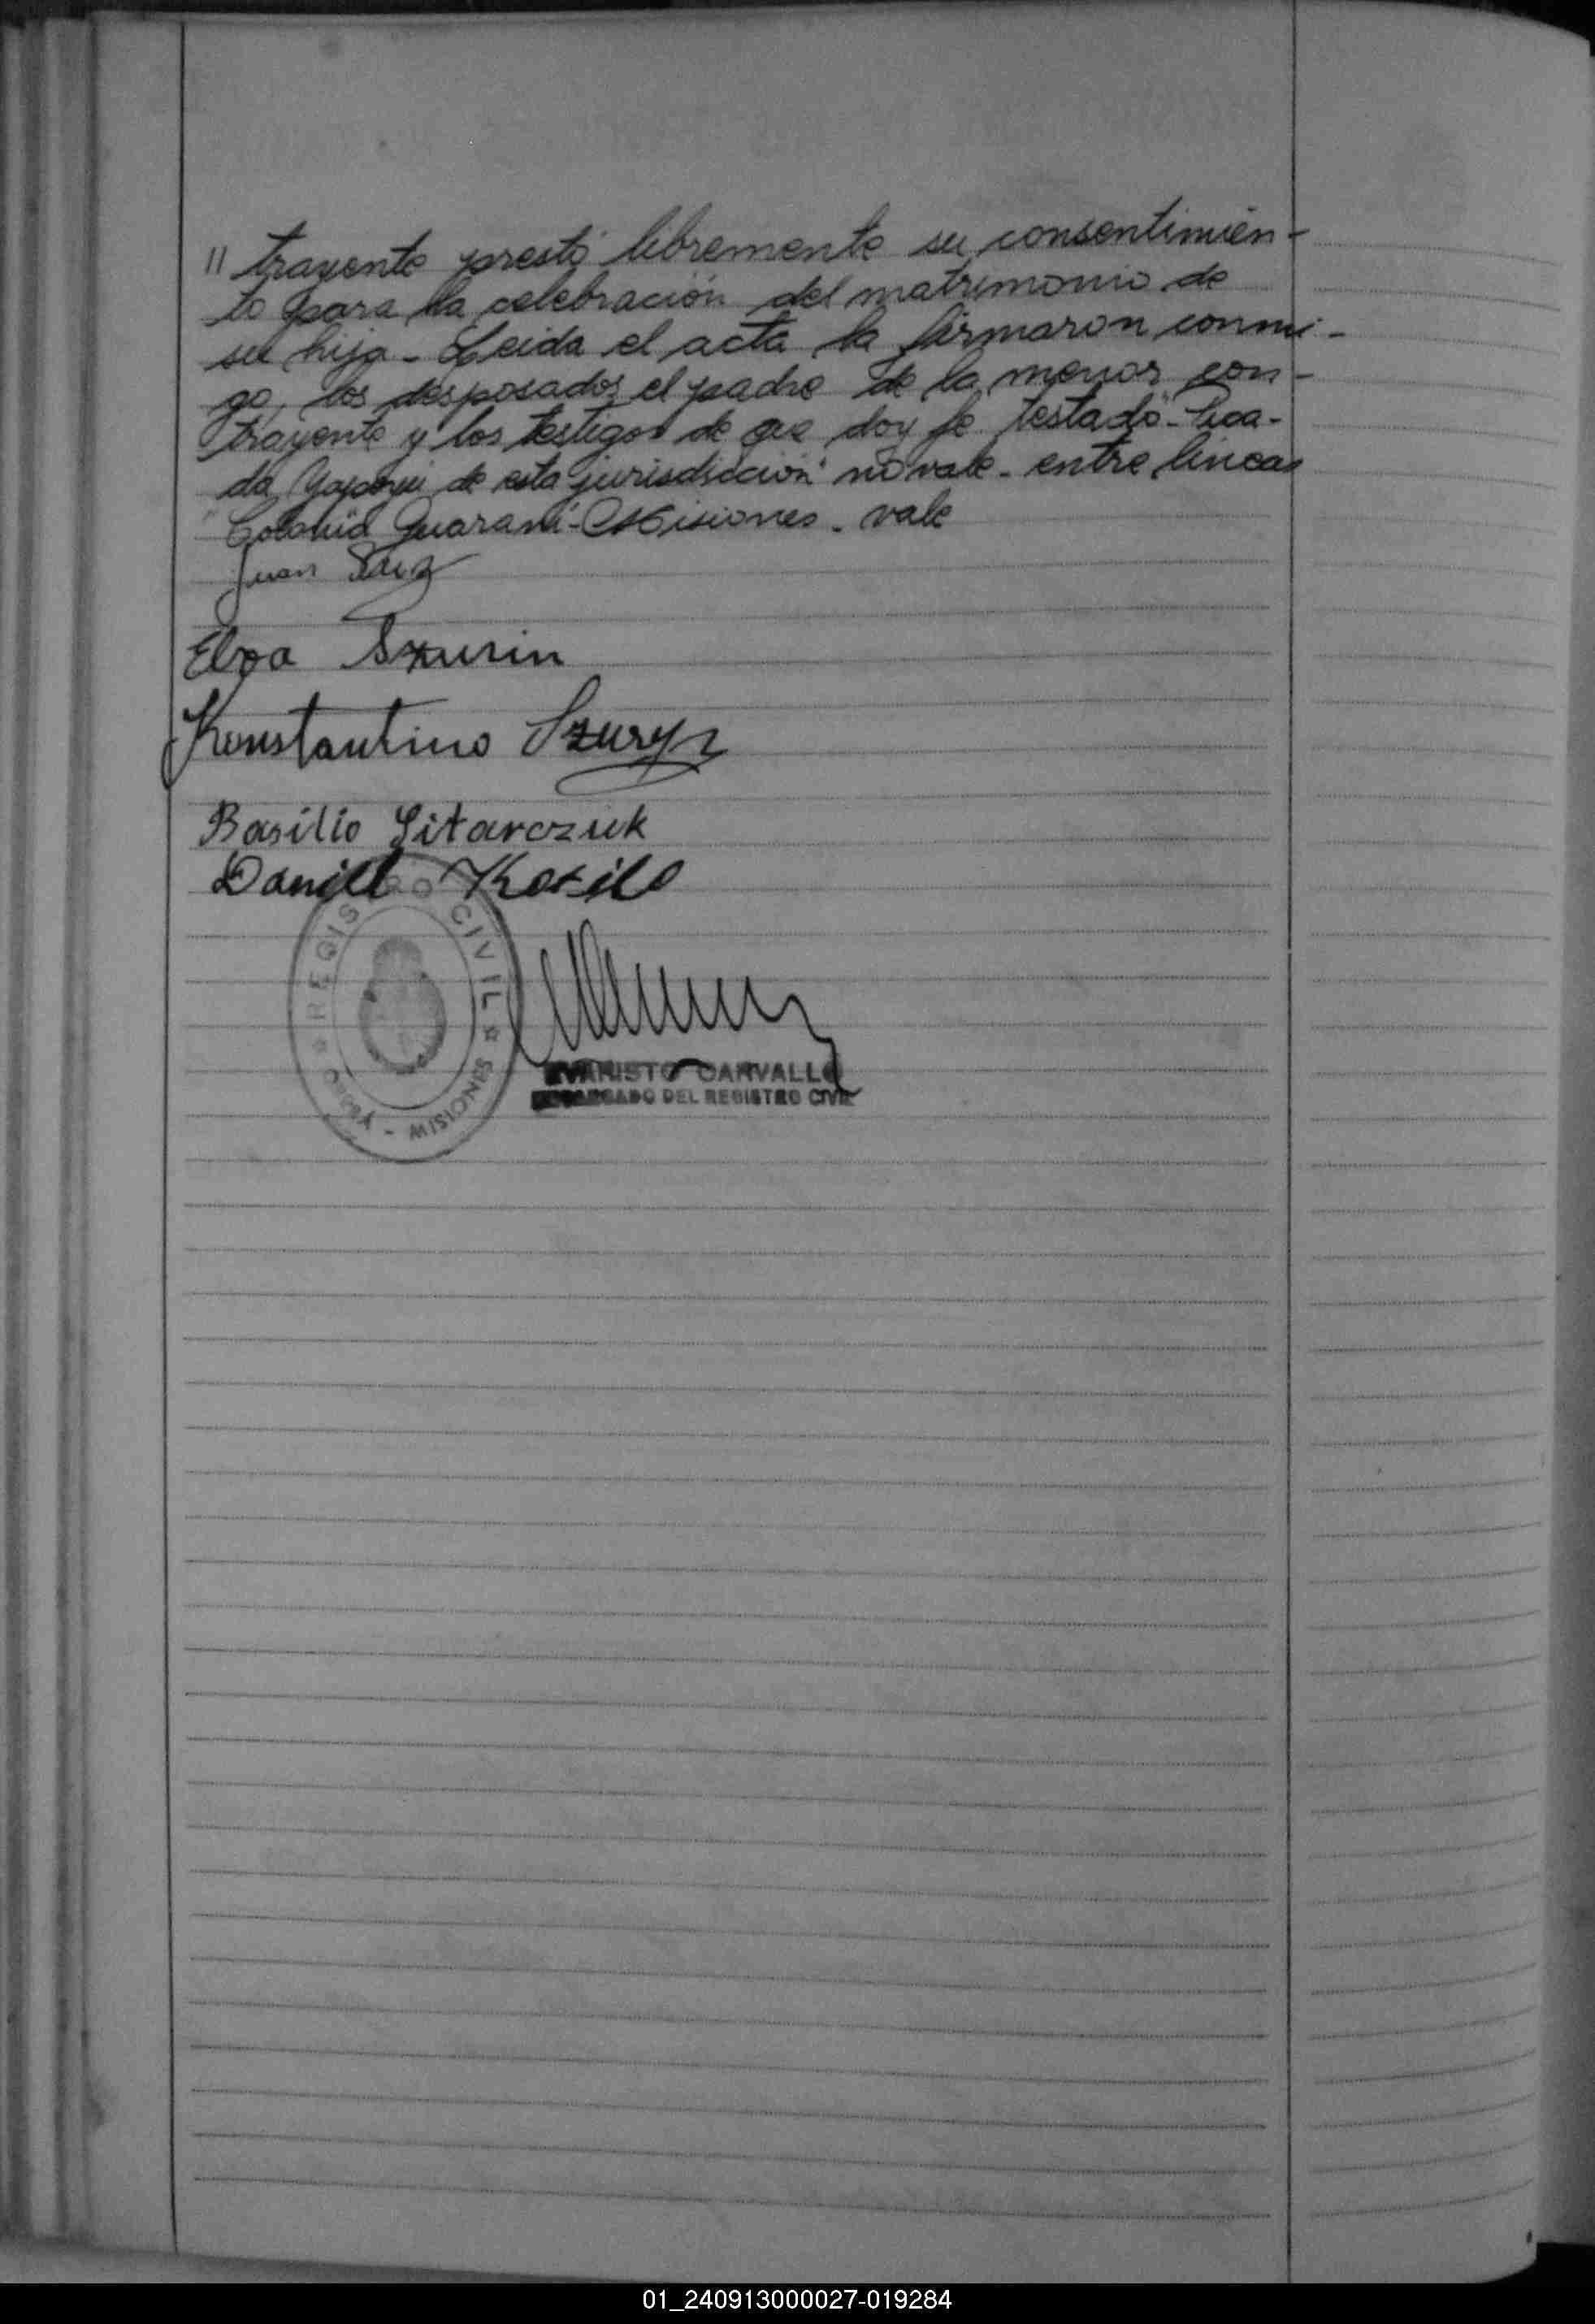 " trayente prestó libremente su consentimien-
to para la celebración del matrimonio de
su hija - Leida el acta la firmaron conmi-
go, los desposados el padre de la menor con-
trayente y los testigos de que doy fe testado "Pica-
da Yapeyú de esta jurisdicción" no vale - entre lineas
"Colonia Guaraní - Misiones - vale
Juan
Elsa Szurin
Konstantino Szuryn
Basilio Sitarczuk
Daniel
REGISTRO CIVIL
MISIONES
EVARISTO CARVALLO
ENCARGADO DEL REGISTRO CIVIL
01_240913000027-019284